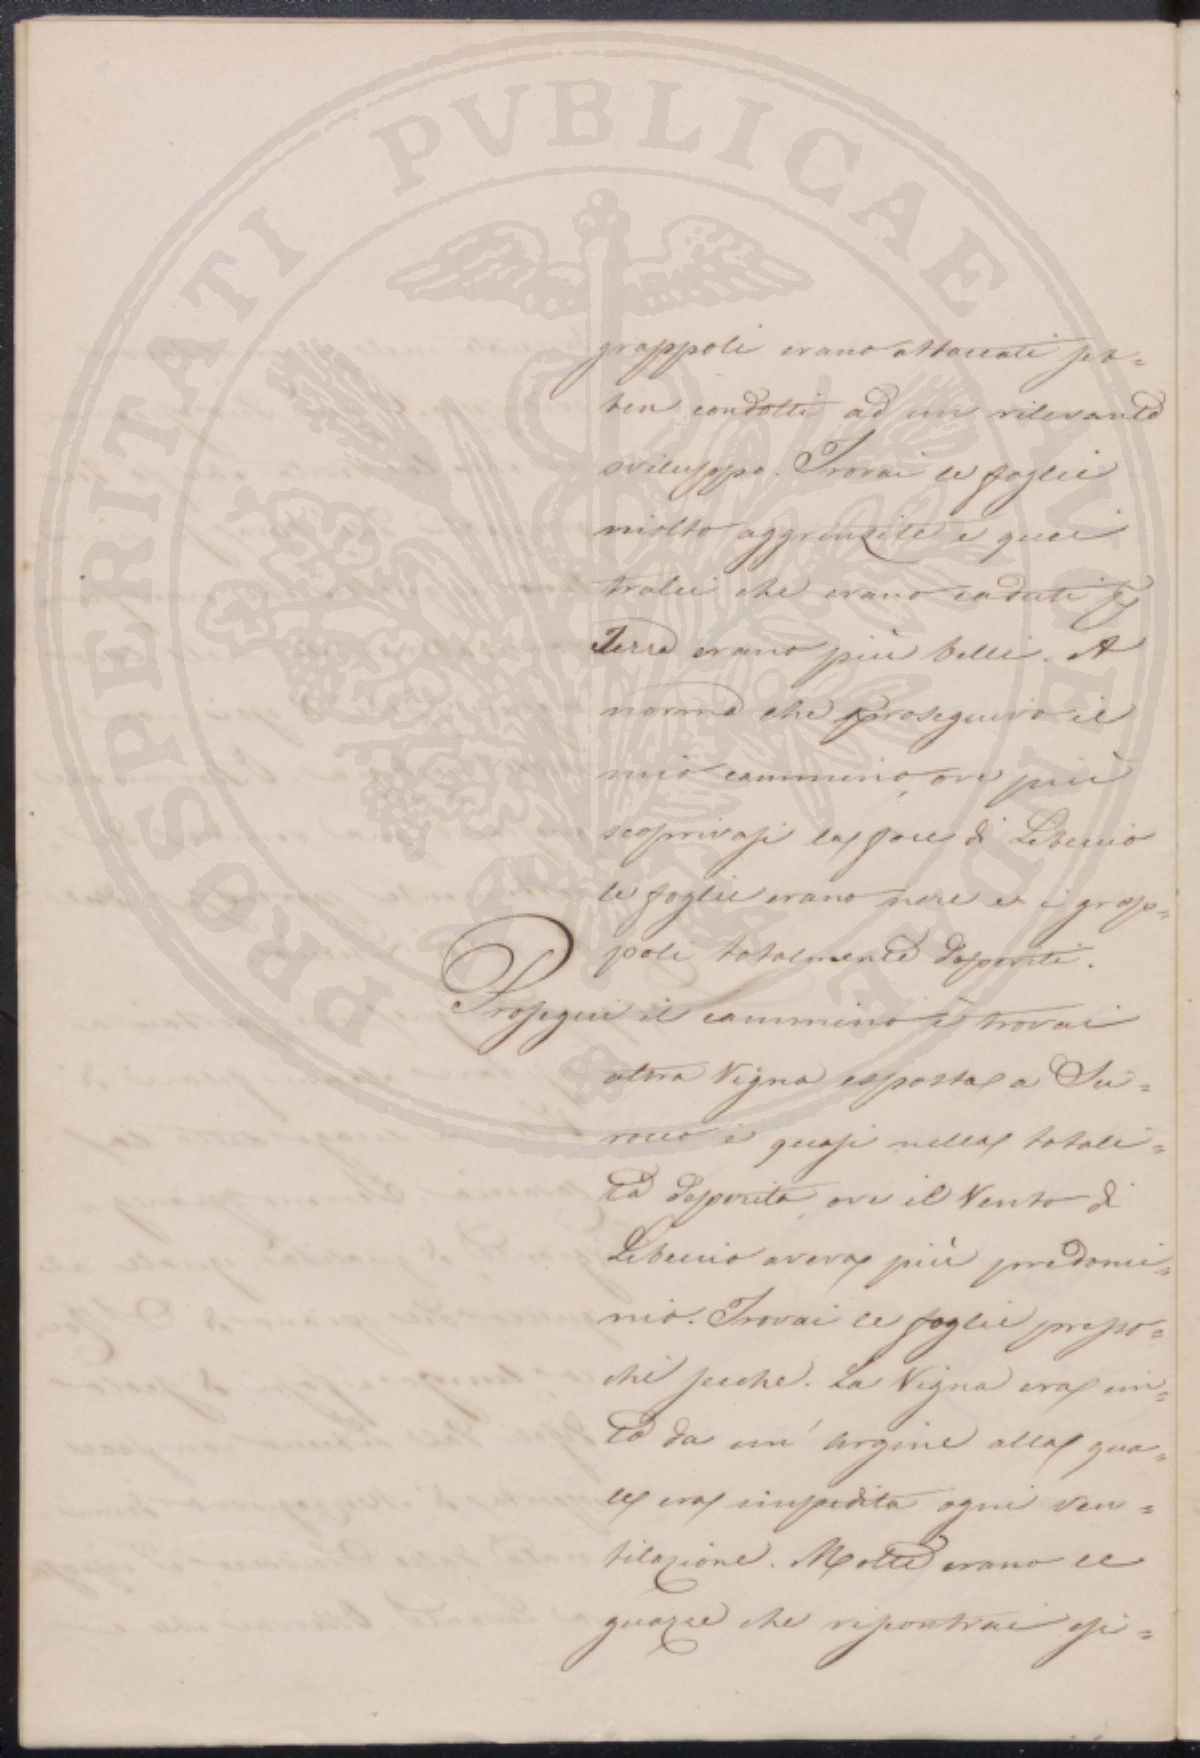 PROSPERITATI PVBLICAE AVGENDAE
grappoli erano attaccati seb=
ben condotti ad un rilevante
sviluppo. Trovai le foglie
molto aggrinzite e quei
tralci che erano caduti p
Terra erano più belli. A
norma che proseguivo il
mio cammino, ove più
scoprivasi la foce di Libeccio
le foglie erano nere e i grap=
poli totalmente deperiti.
Proseguii il cammino e trovai
altra Vigna esposta a Sci=
rocco e quasi nella totali=
tà deperita, ove il Vento di
Libeccio aveva più predomi=
nio. Trovai le foglie presso=
chè secche. La Vigna era cin=
ta da un' argine alla qua=
le era impedita ogni ven=
tilazione. Molte erano le
guazze che riscontrai esi=